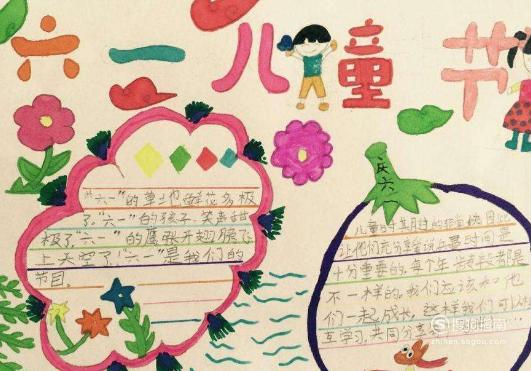 六一儿童节
"六一"的草地鲜花多极
了."六一"的孩子笑声甜
极了."六一"的鹰张开翅膀飞
上天空了!"六一"是我们的
节目.
庆六一
儿童时期是
让他们充分享受这段时间是
十分重要的.每个年龄段都是
不一样的.我们应该和他
们一起成长,这样我们可以
互学习.共同分享
zhinan.sogou.com